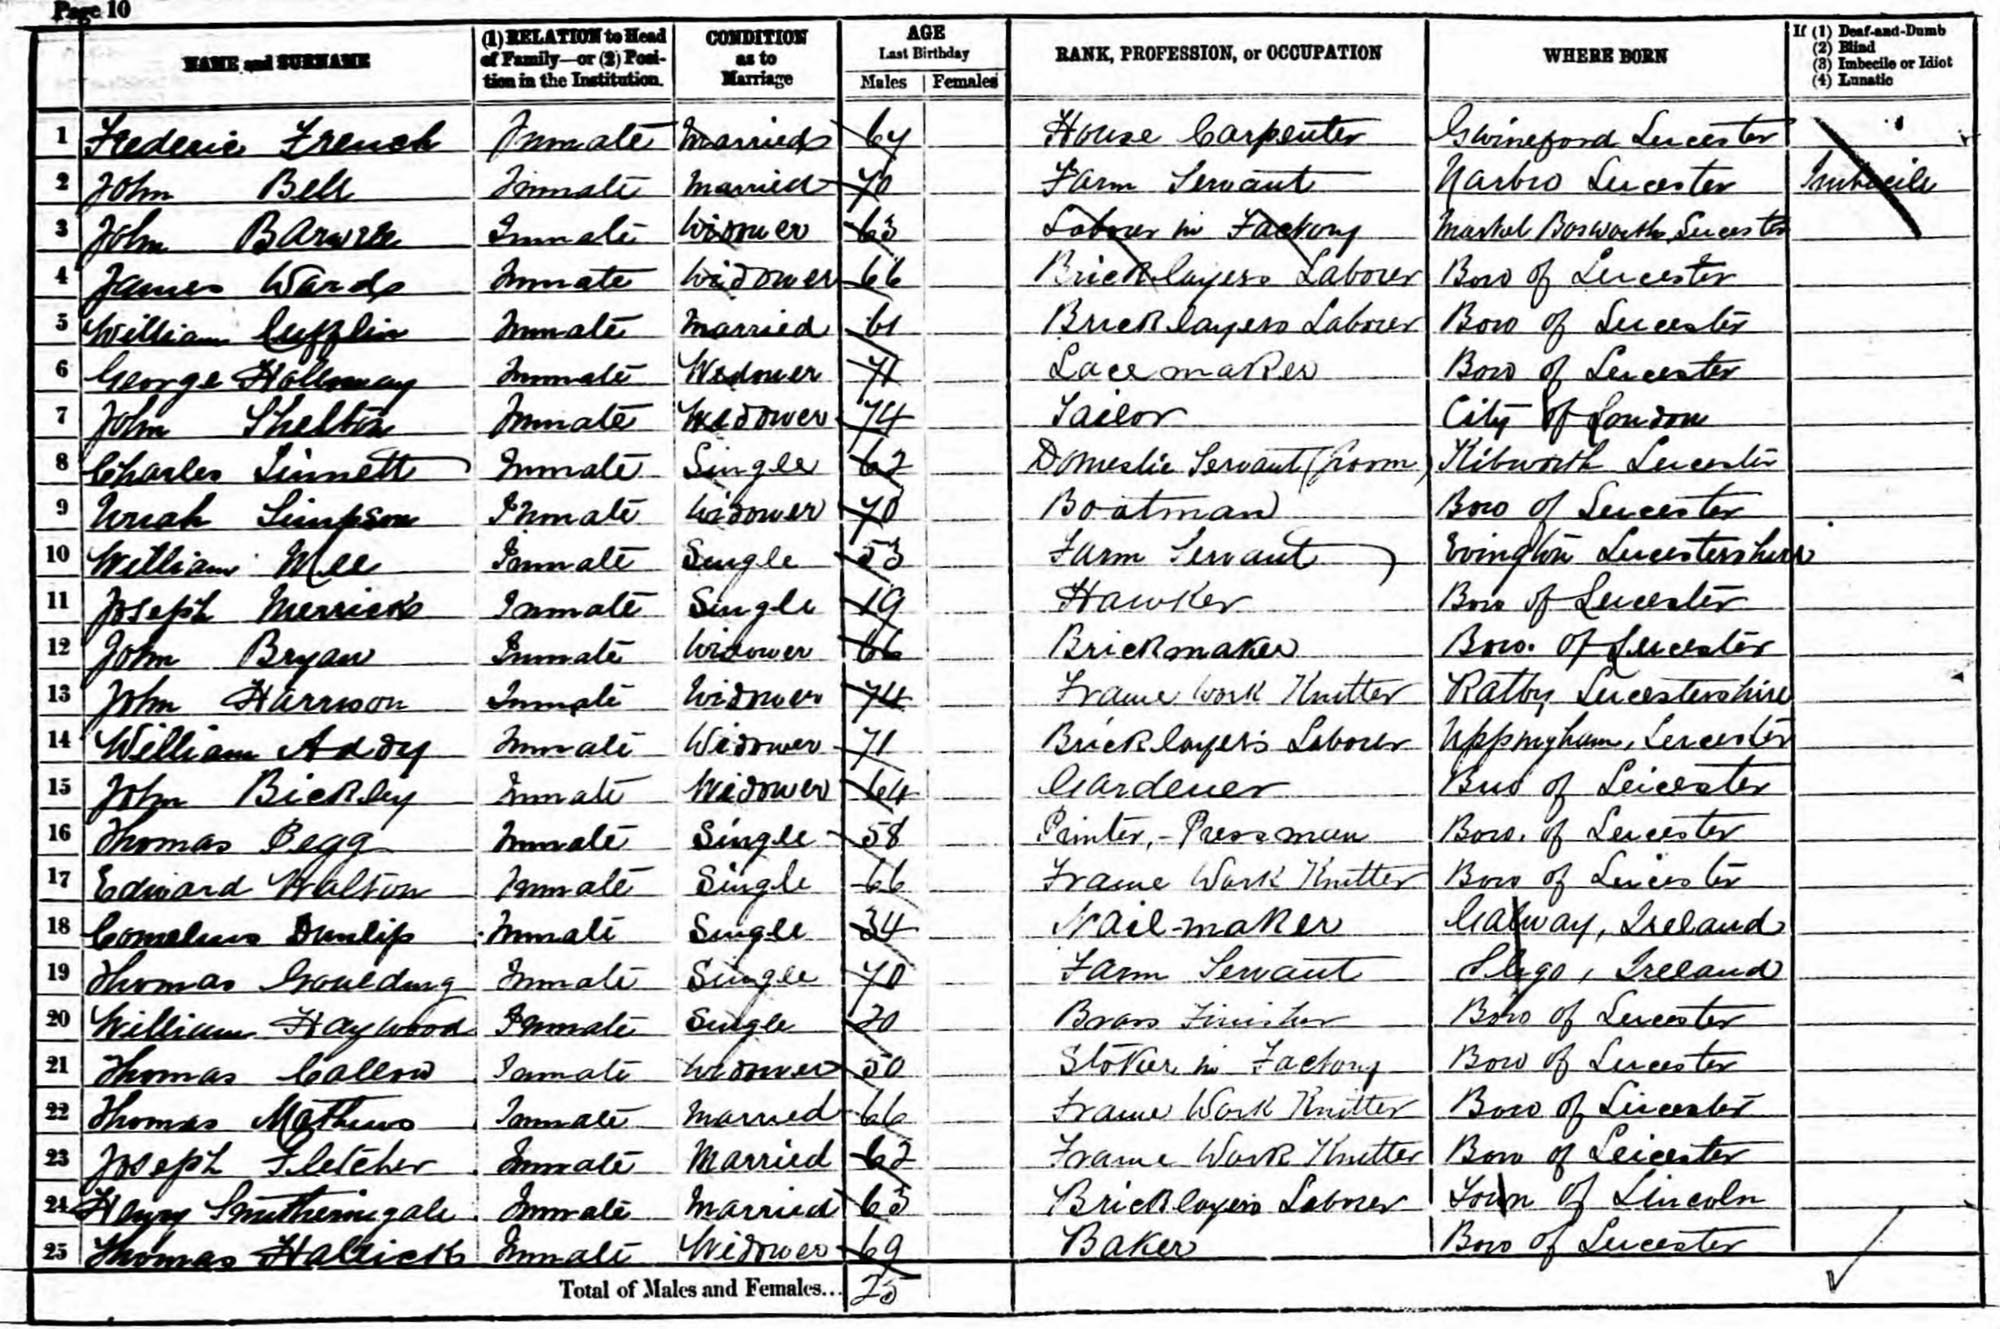 Page 10
NAME and SURNAME (1) RELATION to Head of Family—or (2) Position in the Institution. CONDITION as to Marriage AGE Last Birthday Males Females RANK, PROFESSION, or OCCUPATION WHERE BORN If (1) Deaf-and-Dumb (2) Blind (3) Imbecile or Idiot (4) Lunatic
1 Frederic French Inmate Married 67 House Carpenter Leicester
2 John Bell Inmate Married 70 Farm Servant Narbro Leicester Imbecile
3 John Inmate Widower 63 Labourer in Factory Market Bosworth Leicester
4 James Wards Inmate Widower 66 Bricklayers Labourer Boro of Leicester
5 William Cufflin Inmate Married 61 Bricklayers Labourer Boro of Leicester
6 George Holloway Inmate Widower 71 Lace maker Boro of Leicester
7 John Shelton Inmate Widower 74 Tailor City of London
8 Charles Sinnett Inmate Single 62 Domestic Servant (Groom) Kibworth Leicester
9 Uriah Simpson Inmate Widower 70 Boatman Boro of Leicester
10 William Mee Inmate Single 53 Farm Servant Evington Leicestershire
11 Joseph Merrick Inmate Single 19 Hawker Boro of Leicester
12 John Bryan Inmate Widower 66 Brickmaker Boro. of Leicester
13 John Harrison Inmate Widower 74 Frame Work Knitter Ratby Leicestershire
14 William Addy Inmate Widower 71 Bricklayer's Labourer Uppingham, Leicester
15 John Bickley Inmate Widower 64 Gardener Boro of Leicester
16 Thomas Pegg Inmate Single 58 Printer, - Pressman Boro. of Leicester
17 Edward Walton Inmate Single 66 Frame Work Knitter Boro of Leicester
18 Cornelius Dunlip Inmate Single 34 Nail-maker Galway, Ireland
19 Thomas Goulding Inmate Single 70 Farm Servant Sligo, Ireland
20 William Haywood Inmate Single 20 Brass Finisher Boro of Leicester
21 Thomas Callow Inmate Widower 50 Stoker in Factory Boro of Leicester
22 Thomas Mathews Inmate Married 66 Frame Work Knitter Boro of Leicester
23 Joseph Fletcher Inmate Married 62 Frame Work Knitter Boro of Leicester
24 Henry Smitheringale Inmate Married 63 Bricklayers Labourer Town of Lincoln
25 Thomas Hallick Inmate Widower 69 Baker Boro of Leicester
Total of Males and Females... 25